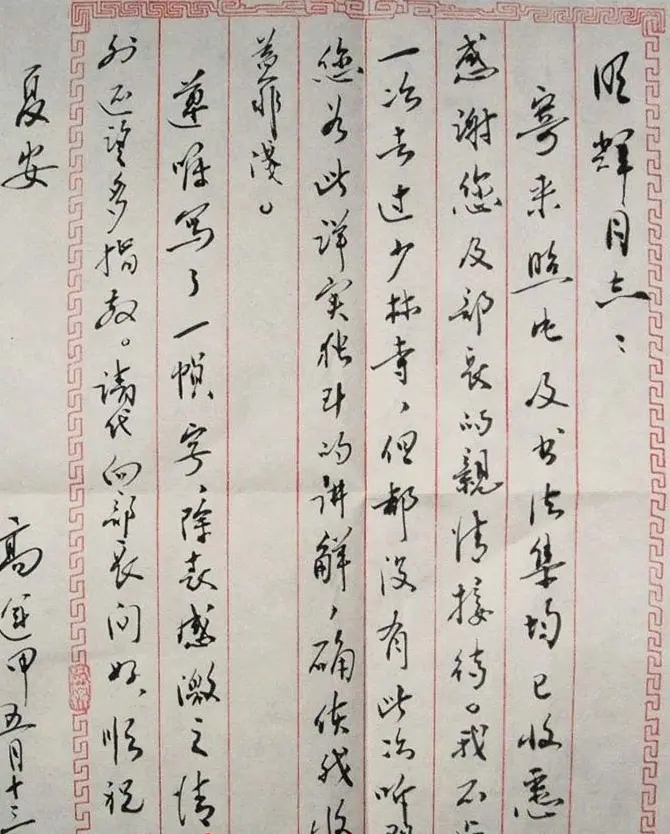 辉同志：
寄来照片及书法集均已收悉
感谢您及部长的亲情接待。我不止
一次去过少林寺，但都没有此次听
您如此详实独到的讲解，确使我收
益非浅。
遵嘱写了一帧字，除表感激之情
外还望多指教。请代向部长问好，顺祝
夏安
高运甲五月十三